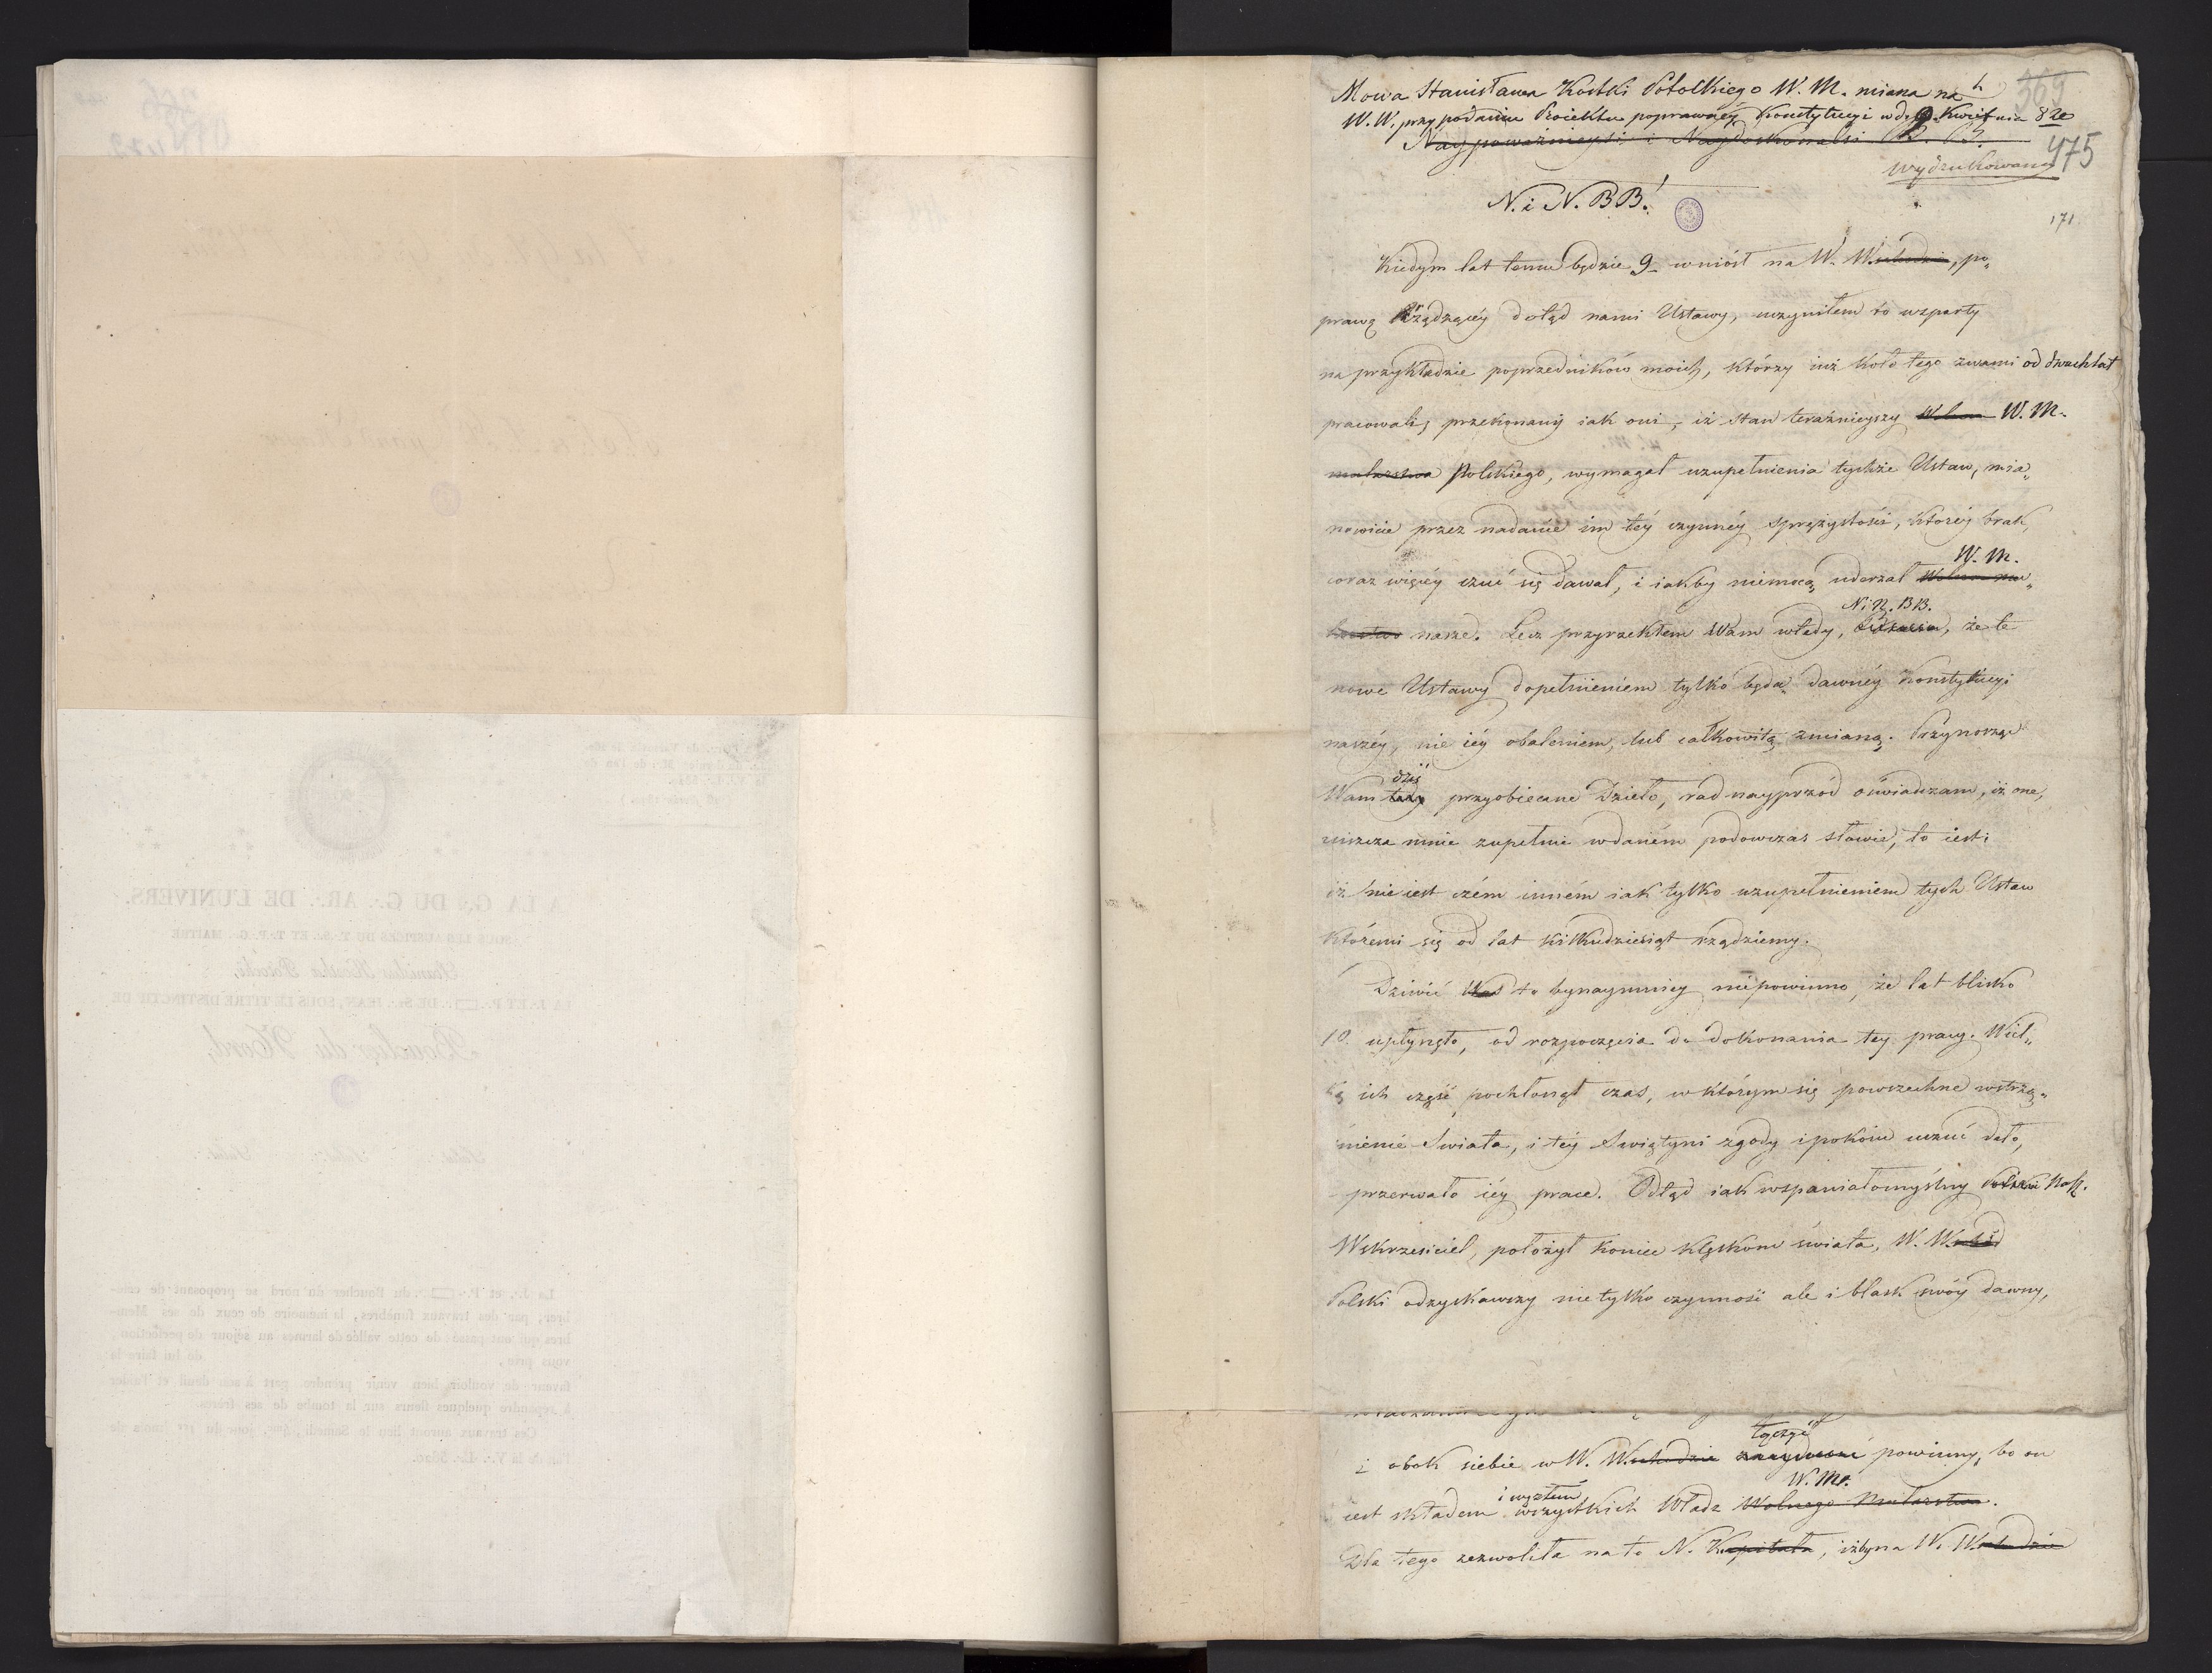 Mowa Stanisława Kostki Potockiego W. M. miana na
W. W. przy podaniu Proiektu poprawnéy Konstytucyi w d. 9. Kwietnia 820
Naypoważnieysi i Naydoskonalsi B. B.
369
475
wydrukowana
171.
N. i N. BB!
Kiedym lat temu będzie 9 wniósł na W. Wschodzie, po„
prawę Rządzącéy dotąd nami Ustawy, uczyniłem to wsparty
na przykładzie poprzedników moich, którzy iuż koło tego zwami od dwuch lat
pracowali, przekonany iak oni, iż stan teraźnieyszy Wolno W. M.
mularstwa Polskiego, wymagał uzupełnienia tychże Ustaw, mia„
nowicie przez nadanie im téy czynnéy sprężystości, któréy brak,
W. M.
coraz więcéy czuć się dawał, i iakby niemocą uderzał Wolno mu„
N. i N. BB.
larstwo nasze. Lecz przyrzekłem Wam wtedy, że te
nowe Ustawy dopełnieniem tylko będą dawnéy Konstytucyi
naszéy, nie iéy obaleniem, lub całkowitą zmianą. Przynosząc
dziś
Wam tedy przyobiecane Dzieło, rad nayprzód oświadczam, iż one,
uiszcza mnie zupełnie w daném podówczas słowie, to iest:
iż nie iest czém inném iak tylko uzupełnieniem tych Ustaw
któremi się od lat kilkudziesiąt rządziemy.
Dziwić Was to bynaymniey niepowinno, że lat blisko
10. upłynęło, od rozpoczęcia do dokonania tey pracy. Wiel„
ką ich część pochłonął czas, w którym się powszechne wstrzą„
śnienie Swiata, i téy Swiątyni zgody i pokoiu uczuć dało,
przerwało iéy prace. Odtąd iak wspaniałomyślny Polski Nasz.
Wskrzesiciel, położył koniec klęskom świata, W. Wschód
Polski odzyskawszy nie tylko czynność ale i blask swóy dawny,
łączyć
i obok siebie w W. Wschodzie powinny, bo on
i węzłem W. M.
iest składem wszystkich Władz Wolnego Mularstwa.
Dla tego zezwoliła na to N. Kapituła, iżby na W. Wschodzie
A LA G∴ DU G∴ AR∴ DE L'UNIVERS
SOUS LES AUSPICES DU T∴ S∴ ET T∴ P∴ G∴ MAITRE
Stanislas Kostka Potocki,
LA J∴ ET P∴ DE St∴ JEAN, SOUS LE TITRE DISTINCTIF DE
Bouclier du Nord,
La J∴ et P∴ du Bouclier du nord se proposant de célé-
brer, par des travaux funèbres, la mémoire de ceux de ses Mem-
bres qui ont passé de cette vallée de larmes au séjour de perfection,
vous prie, de lui faire la
faveur de vouloir bien venir prendre part à son deuil et l'aider
à répandre quelques fleurs sur la tombe de ses frères.
Ces travaux auront lieu le Samedi